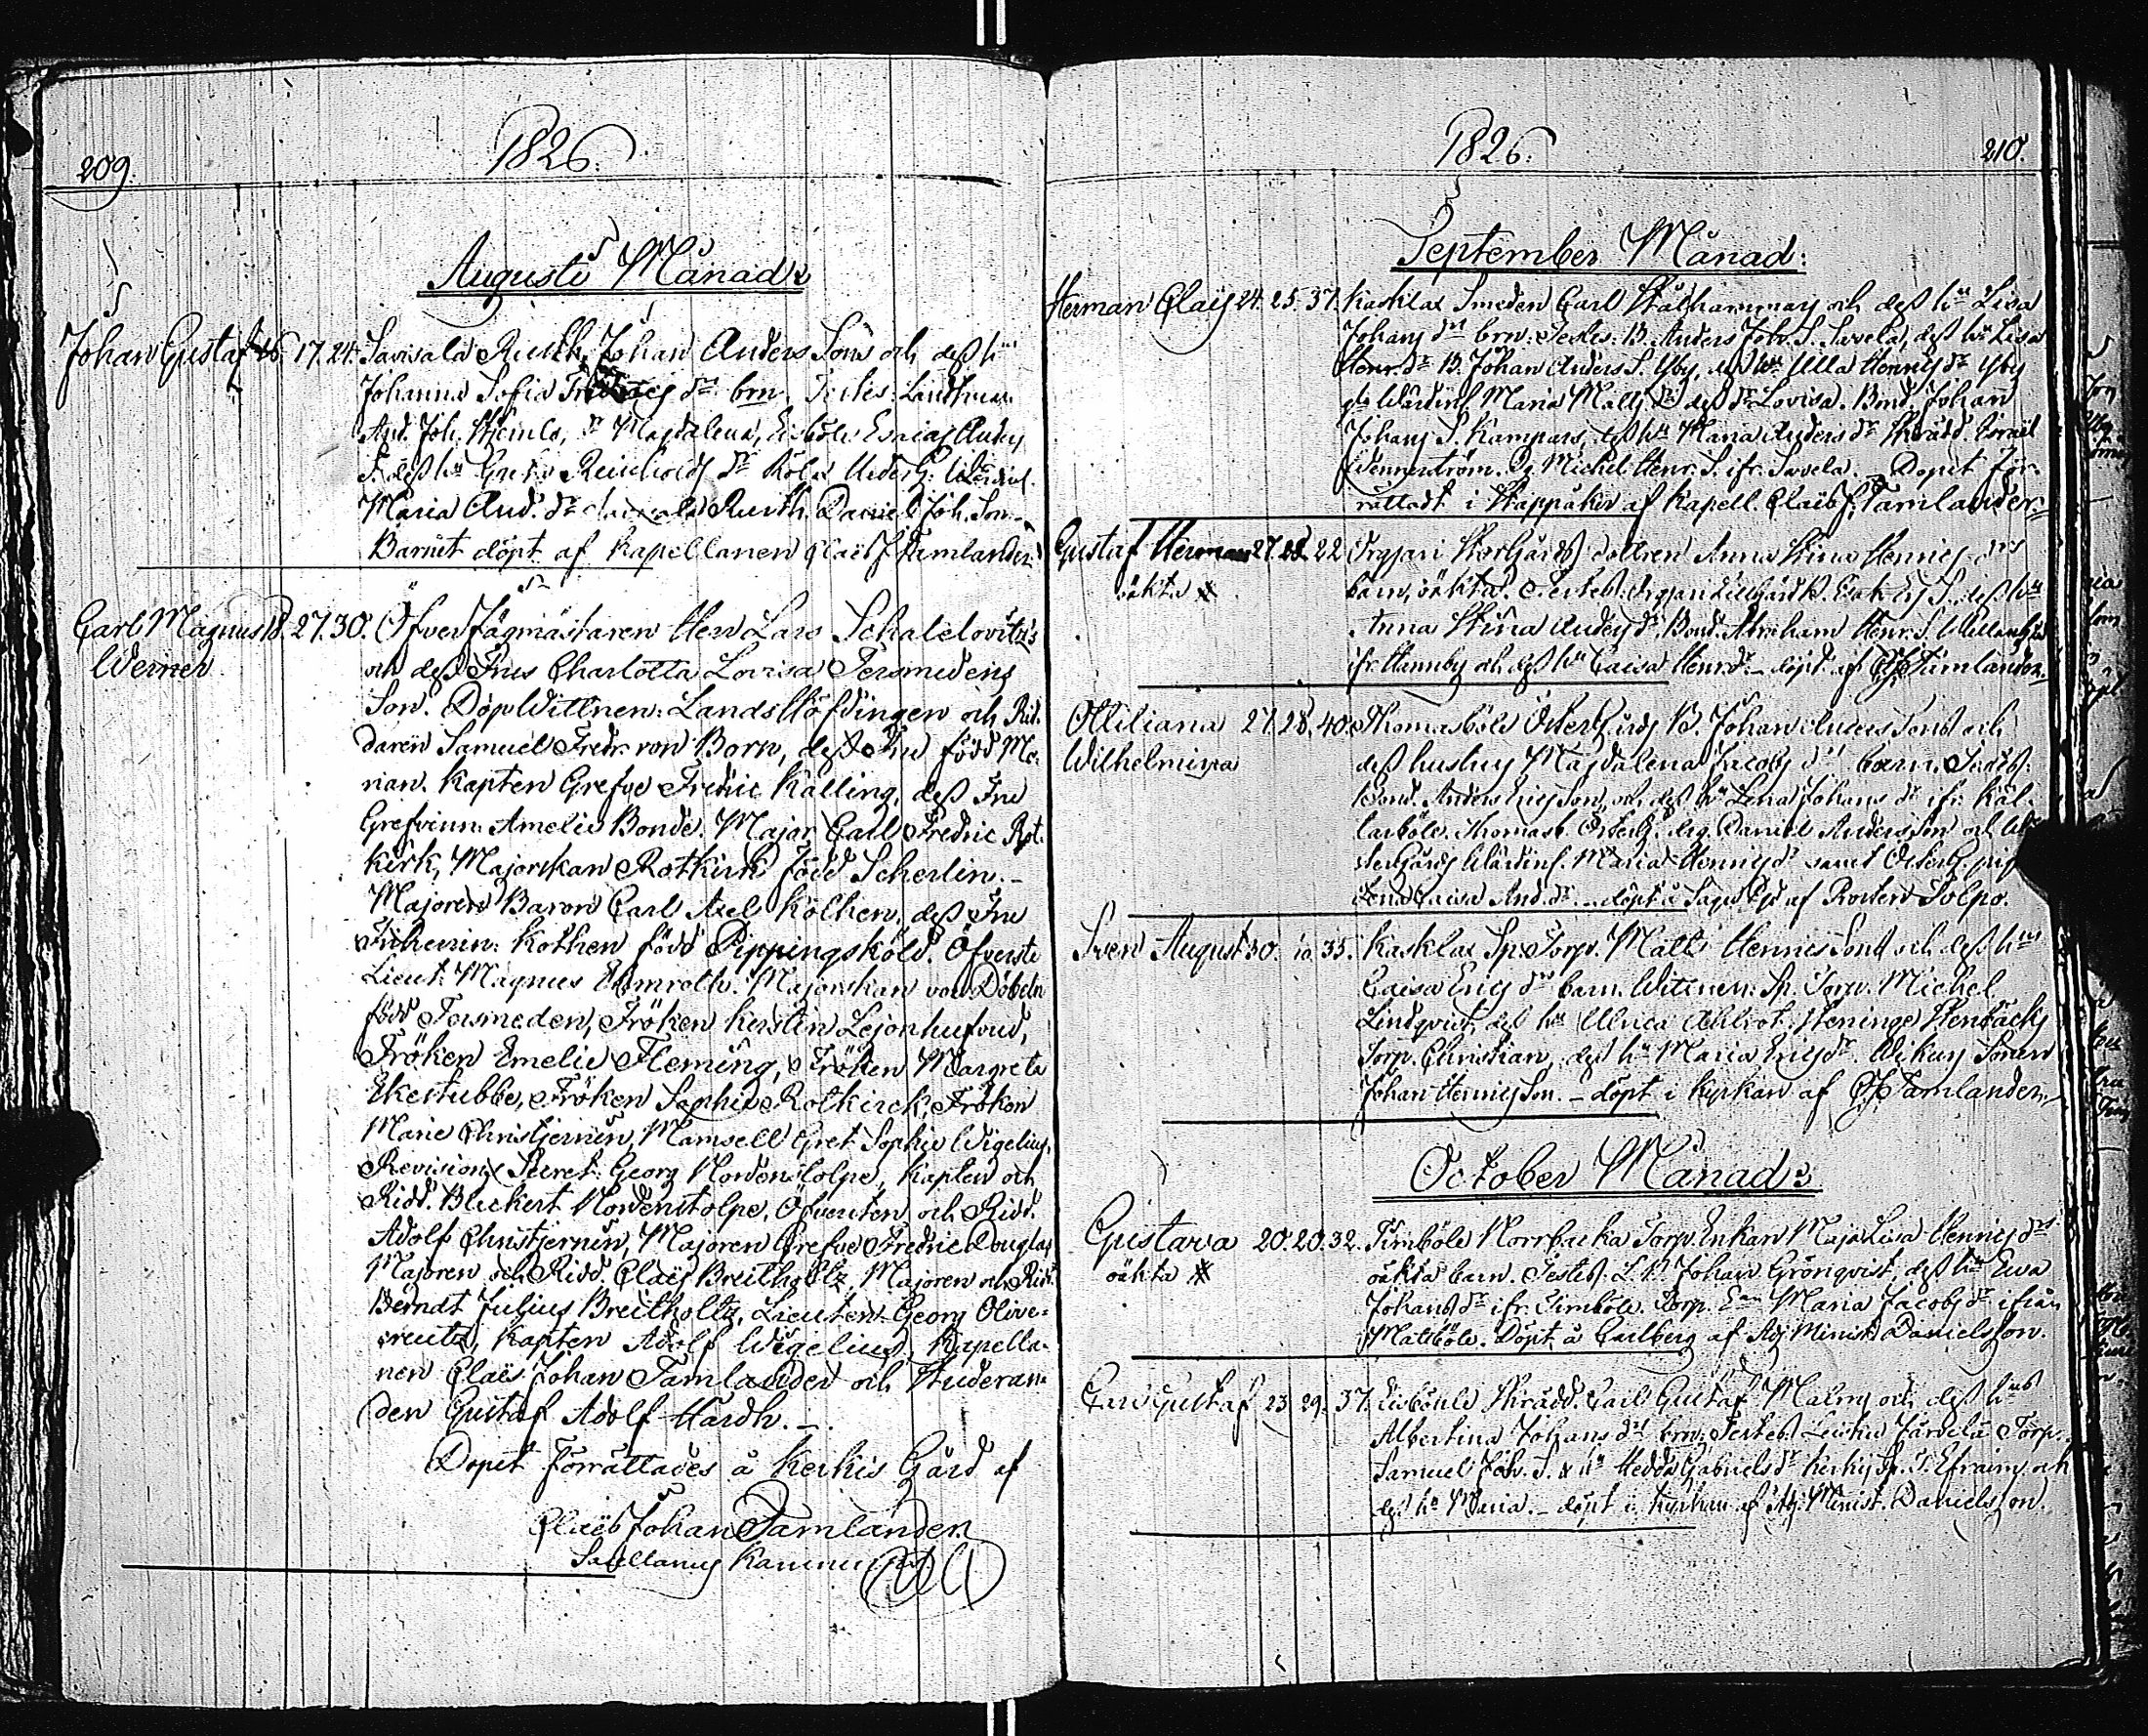 209.
1826.
Augusti Månad:
Johan Gustaf 16. 17. 24. Savisala Rusth. Johan Anders Sons och deß h:us
Johanna Sofia d:r brn. Testes: Landtman
And. Joh. Hjemlo, d:r Magdalena, Eisböle Esaias Anders
S. deß h:u Greta Reinholds d:r Röla
Maria And. d:r Rusth. Daniel Joh. Son.
Barnet döpt af Kapellanen Claës J Tamlander.
Carl Magnus 18. 27. 30. Öfver Jägmästaren Herr Lars Schalelovitz's
Werner och deß Frus Charlotta Lovisa Tersmedens
Son. Döpwittnen: Landshöfdingen och Rid-
daren Samuel Fredr. von Born, deß Fru född Me-
rian. Kapten Grefve Fredric Kalling, deß Fru
Grefvinn. Amelie Bonde. Major Carl Fredric Rot-
kirk, Majorskan Rotkirk född Scherlin. _
Majoren Baron Carl Axel Köthen, deß Fru
Friherrin: Kothen född Pippingsköld. Öfverste
Lieut. Magnus Ehrnroth. Majorskan von Döbeln
född Tersmeden, Fröken Kerstin Lejonhufvud,
Fröken Emelie Fleming, Fröken Margreta
Ekestubbe, Fröken Sophie Rotkirck, Fröken
Marie Christjernin, Mamsell Gret Sophie Wigelius,
Revisions Secret. Georg Nordenstolpe, Kapten och
Ridd. Bleckert Nordenstolpe, Öfversten och Ridd.
Adolf Christjernin, Majoren Grefve Fredric Douglas
Majoren och Ridd. Claës Breitholtz, Majoren och Ridd.
Berndt Julius Breitholtz, Lieuten. Georg Olive-
creutz, Kapten Adolf Wigelius, Kapella-
nen Claës Johan Tamlander och Studeran-
den Gustaf Adolf Hårdh. _
Dopet förrättades å Kerkis Gård af
Claës Johan Tamlander.
1826.
210.
September Månad:
Herman Claës 24. 25. 37. Kasklax Smeden Carl Stålhammars och deß h:us Lisa
Johans d:rs brn. Testes: B. Anders Joh. S. Savela, deß h:u Lisa
Henr. d:r B. Johan Anders S. Yby, deß h:u Ulla Henrics d:r Yby
Maria Matts d:r deß d:r Lovisa. Bond. Johan
Johans S. Kampars, deß h:u Maria Anders d:r Skrädd. Israel
Wennerström. Dr. Michel Henr. S. ifr. Savela. _ Dopet för-
rättadt i Stappåker af Kapell. Claës J. Tamlander.
Gustaf Herman 27. 28. 22. Örgjari Storgårds dottren Anna Stina Henrics d:rs
oäkta barn, oäkta. Testes: Örgjari Lillgård B. Isak Er. S. deß h:u
Anna Stina Anders d:r Bond. Abraham Henr. S.
ifr. Hanneby och deß h:u Caisa Henr. d:r _ döpt af C J Tamlander.
Ottiliana 27. 28. 40. Thomasböle Östergårds B. Johan Anders Sons och
Wilhelmina deß hustrus Magdalena Jacobs d:rs barn. Testes:
Bond. Anders Erics Son, och deß h:u Lena Johans d:r ifr. Käl-
larböle. Thomasb. Österg. drg. Daniel Anders Son och
stergårds Maria Henrics d:r samt Österg. pig.
Lena Caisa And. d:r _ döpt å af Rosten Tolpo.
Sven August 30. 10. 35. Kasklax Sp. Torp. Matts Henrics Sons och deß h:us
Caisa Erics d:rs barn. Wittnen: Sp. Torp. Michel
Lindqvist, deß h:u Ulrica Ahlrot. Heninge Stenbäcks
Torp. Christian, deß h:u Maria Erics d:r. Wikens Sonen
Johan Henrics Son. _ döpt i kyrkan af C J Tamlander.
October Månad:
Gustava 20. 20. 32. Fimböle Norrbacka Torp. Enkan Maja Lisa Henrics d:rs
oäkta oäkta barn. Testes: L. B. Johan Grönqvist, deß h:u Ewa
Johans d:r ifr. Fimböle. Torp. E:an Maria Jacobs d:r ifrån
Mattböle. Döpt å Carlberg af Adj. Minist. Danielsson.
Carl Gustaf 23. 29. 37. Eisböle Skrädd. Carl Gustaf Malms och deß h:us
Albertina Johans d:rs brn: Testes: Järvelä Torp.
Samuel Joh. S. & h:u Hedda Gabriels d:r Kerkis Sp. T. Efraim och
deß h:u Maria. _ döpt i kyrkan af Adj. Minist. Danielsson.